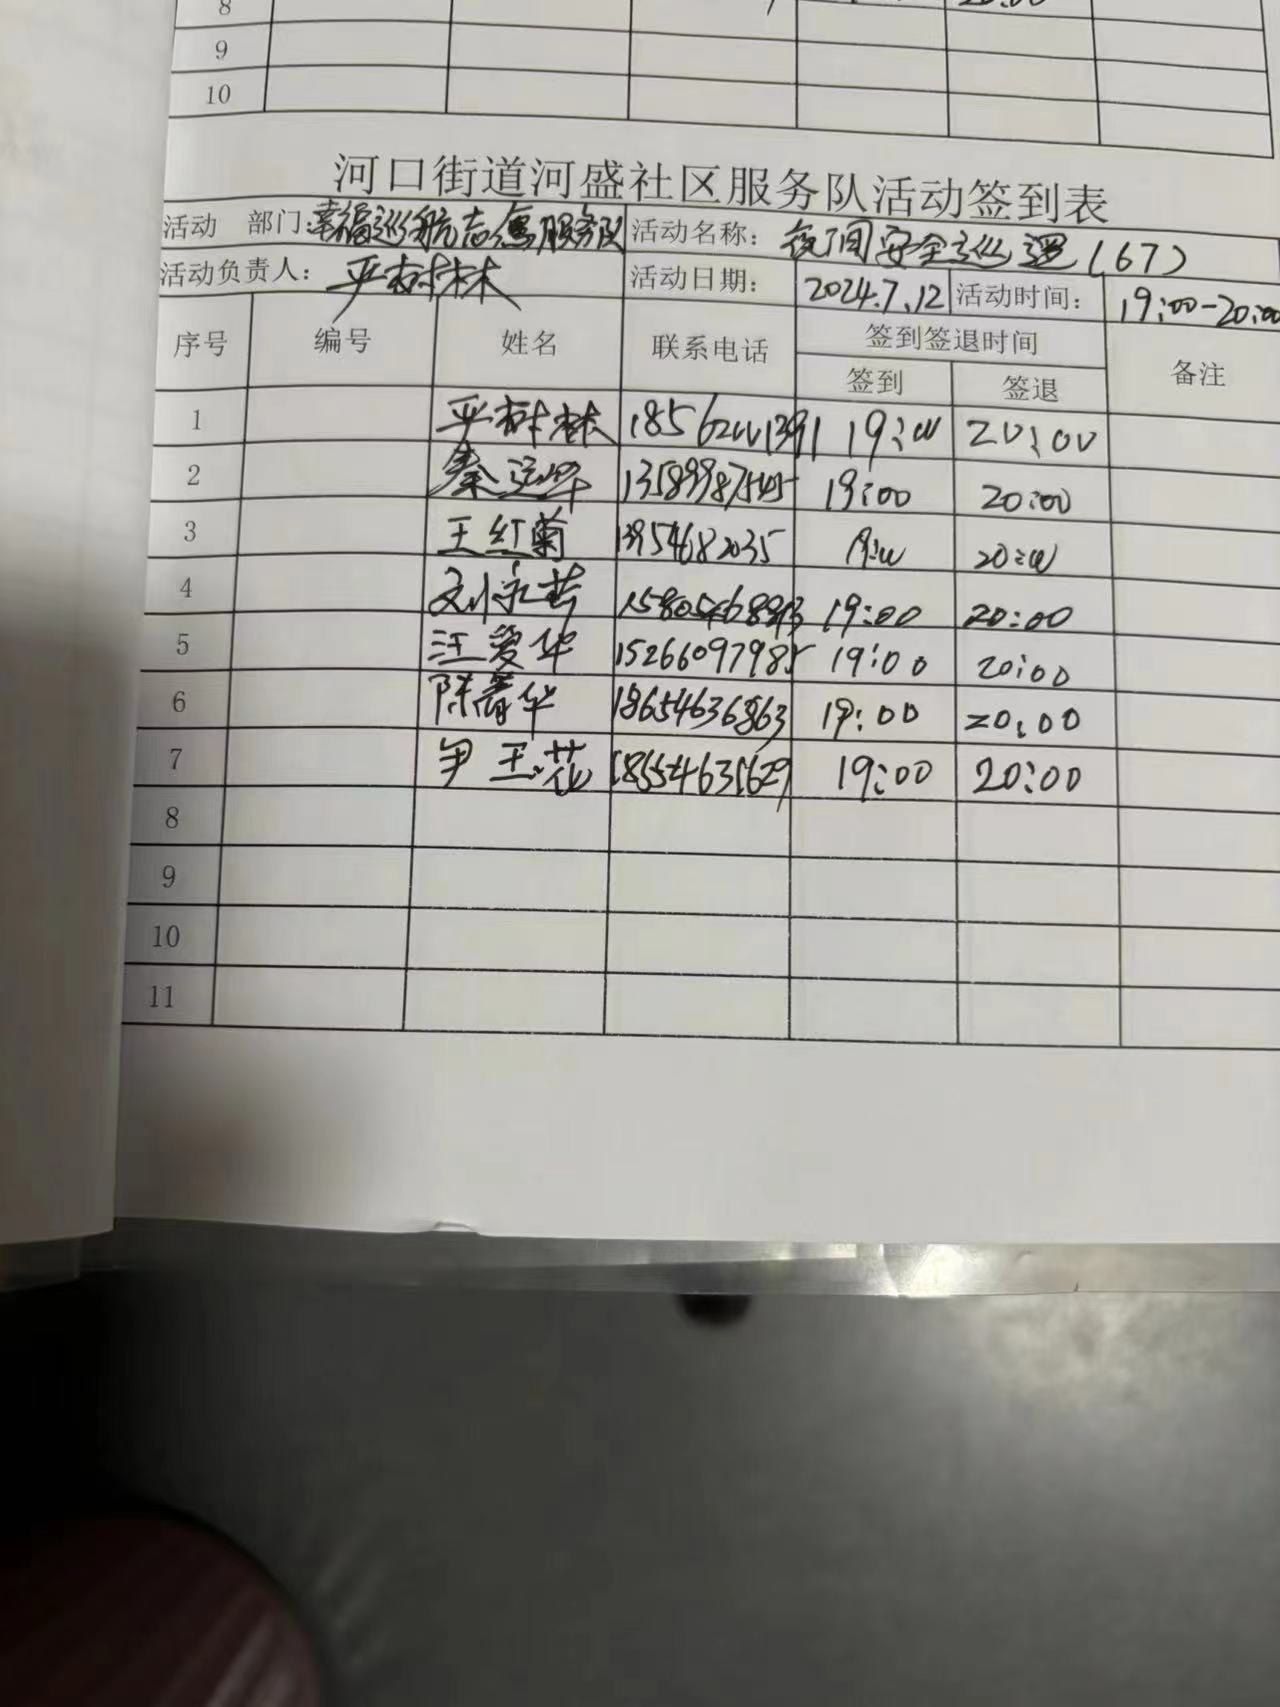 8 20:00
9
10
河口街道河盛社区服务队活动签到表
活动 部门:幸福巡航志愿服务队 活动名称: 夜间安全巡逻(67)
活动负责人: 平树林 活动日期: 2024.7.12 活动时间: 19:00-20:00
序号 编号 姓名 联系电话 签到签退时间 备注
签到 签退
1 平树林 19:00 20:00
2 秦运华 13589987545 19:00 20:00
3 王红菊 13954682035 19:00 20:00
4 19:00 20:00
5 汪爱华 15266097985 19:00 20:00
6 陈春华 18654636863 19:00 20:00
7 尹玉花 19:00 20:00
8
9
10
11